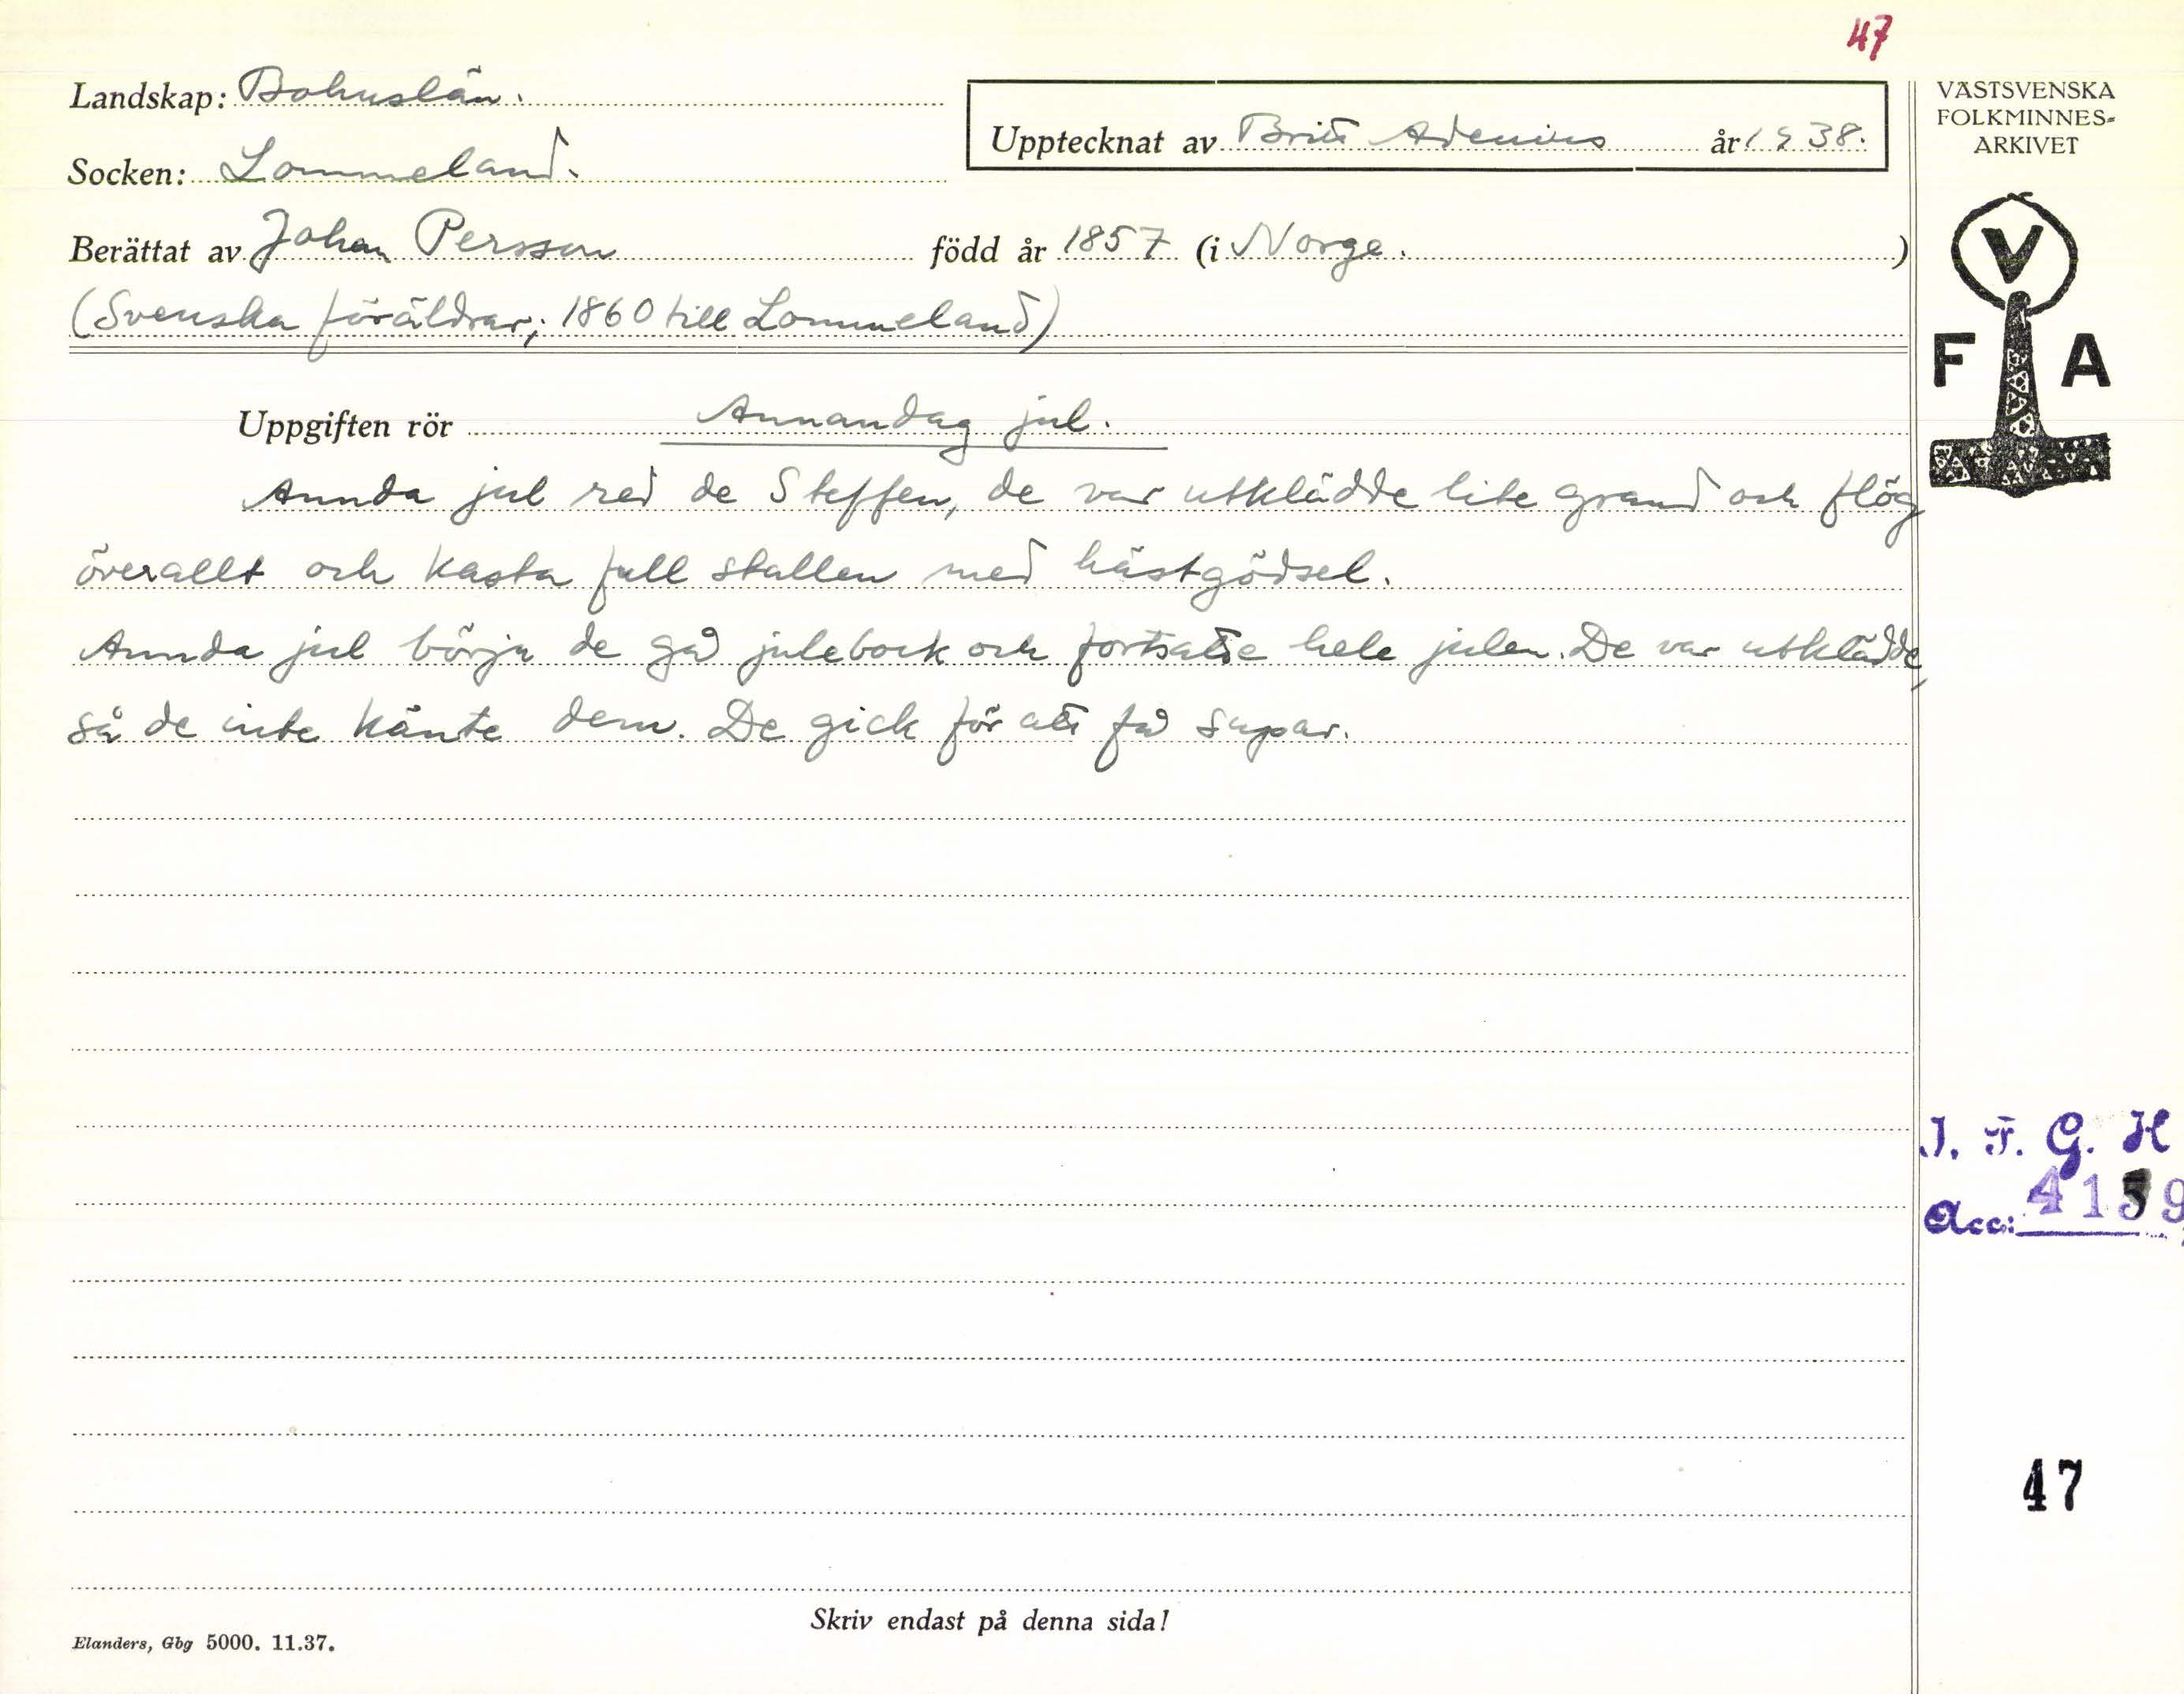 47
Landskap: Bohuslän.
Upptecknat av Britt Adenius år 1938.
Socken: Lommeland.
Berättat av Johan Persson född år 1857 (i Norge.)
(Svenska föräldrar; 1860 till Lommeland)
Uppgiften rör Annandag jul.
Annda jul red de Steffen, de var utklädde lite grand och flög
överallt och kasta full stallen med hästgödsel.
Annda jul börja de gå julebock och fortsatte hele julen. De var utklädde,
så de inte känte dem. De gick för att få supar.
Skriv endast på denna sida!
Elanders, Gbg 5000. 11.37.
VÄSTSVENSKA
FOLKMINNES-
ARKIVET
V
F A
I. F. G. H
Acc: 4159
47